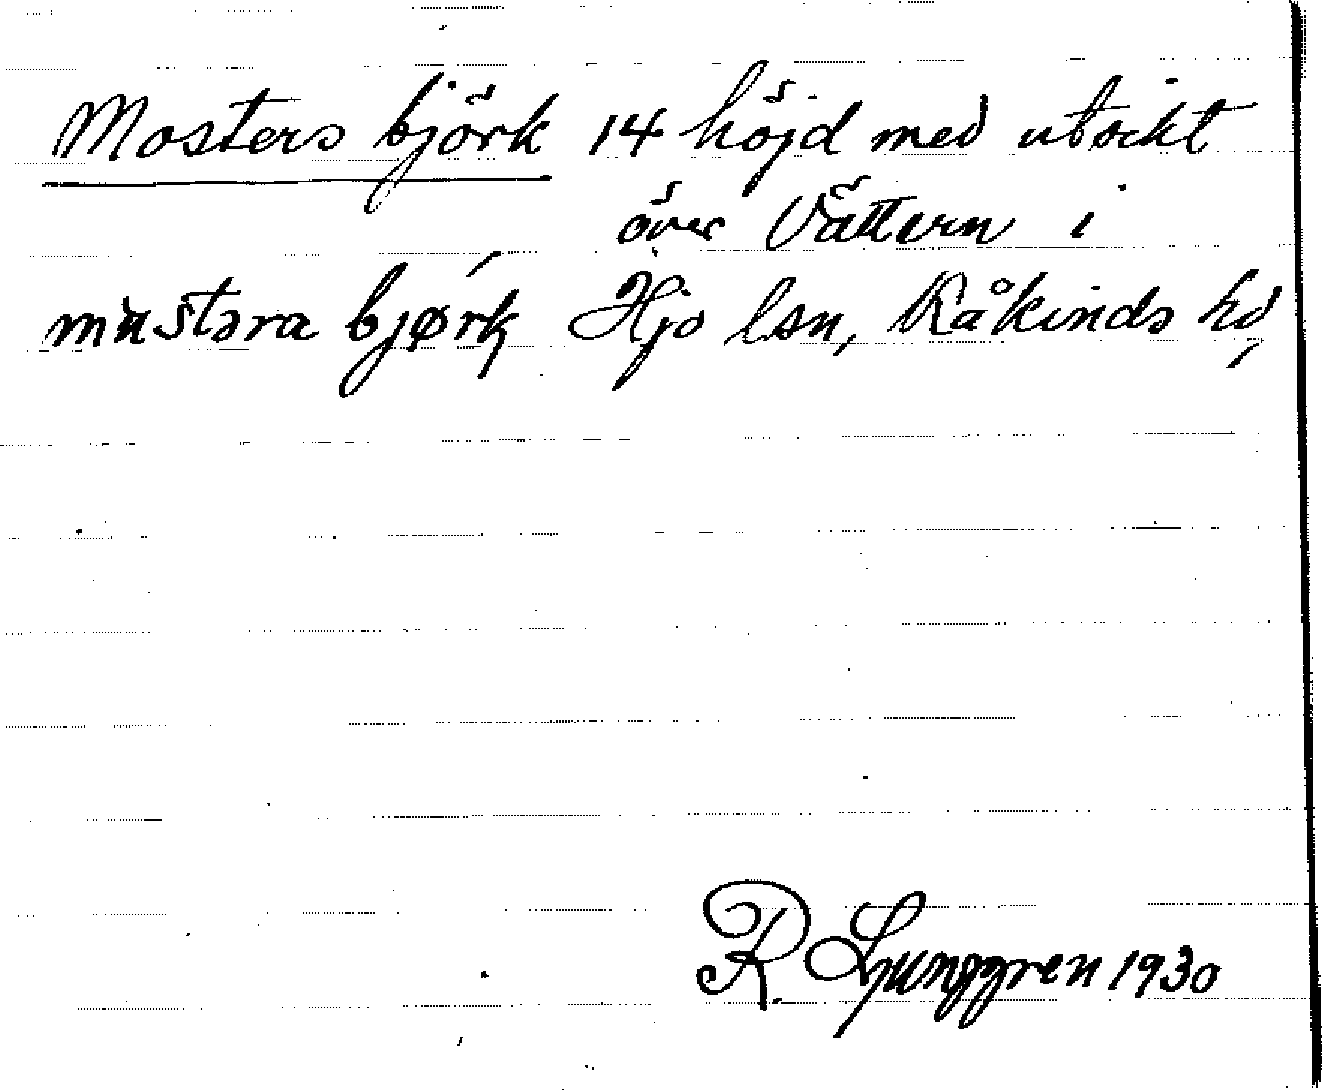 Mosters björk 14 höjd med utsikt
över Vättern i
mustara bjørk Hjo lsn, Kåkinds hd,
R. Ljunggren 1930